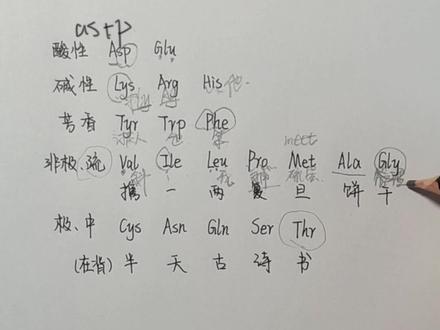 astp
酸性 Asp Glu
碱性 Lys Arg His 他
芳香 Tyr Trp Phe
meet
非极、疏 Val Ile Leu Pro Met Ala Gly
携 一 两 复 旦 饼 干
极、中 Cys Asn Gln Ser Thr
(在背) 半 天 古 诗 书